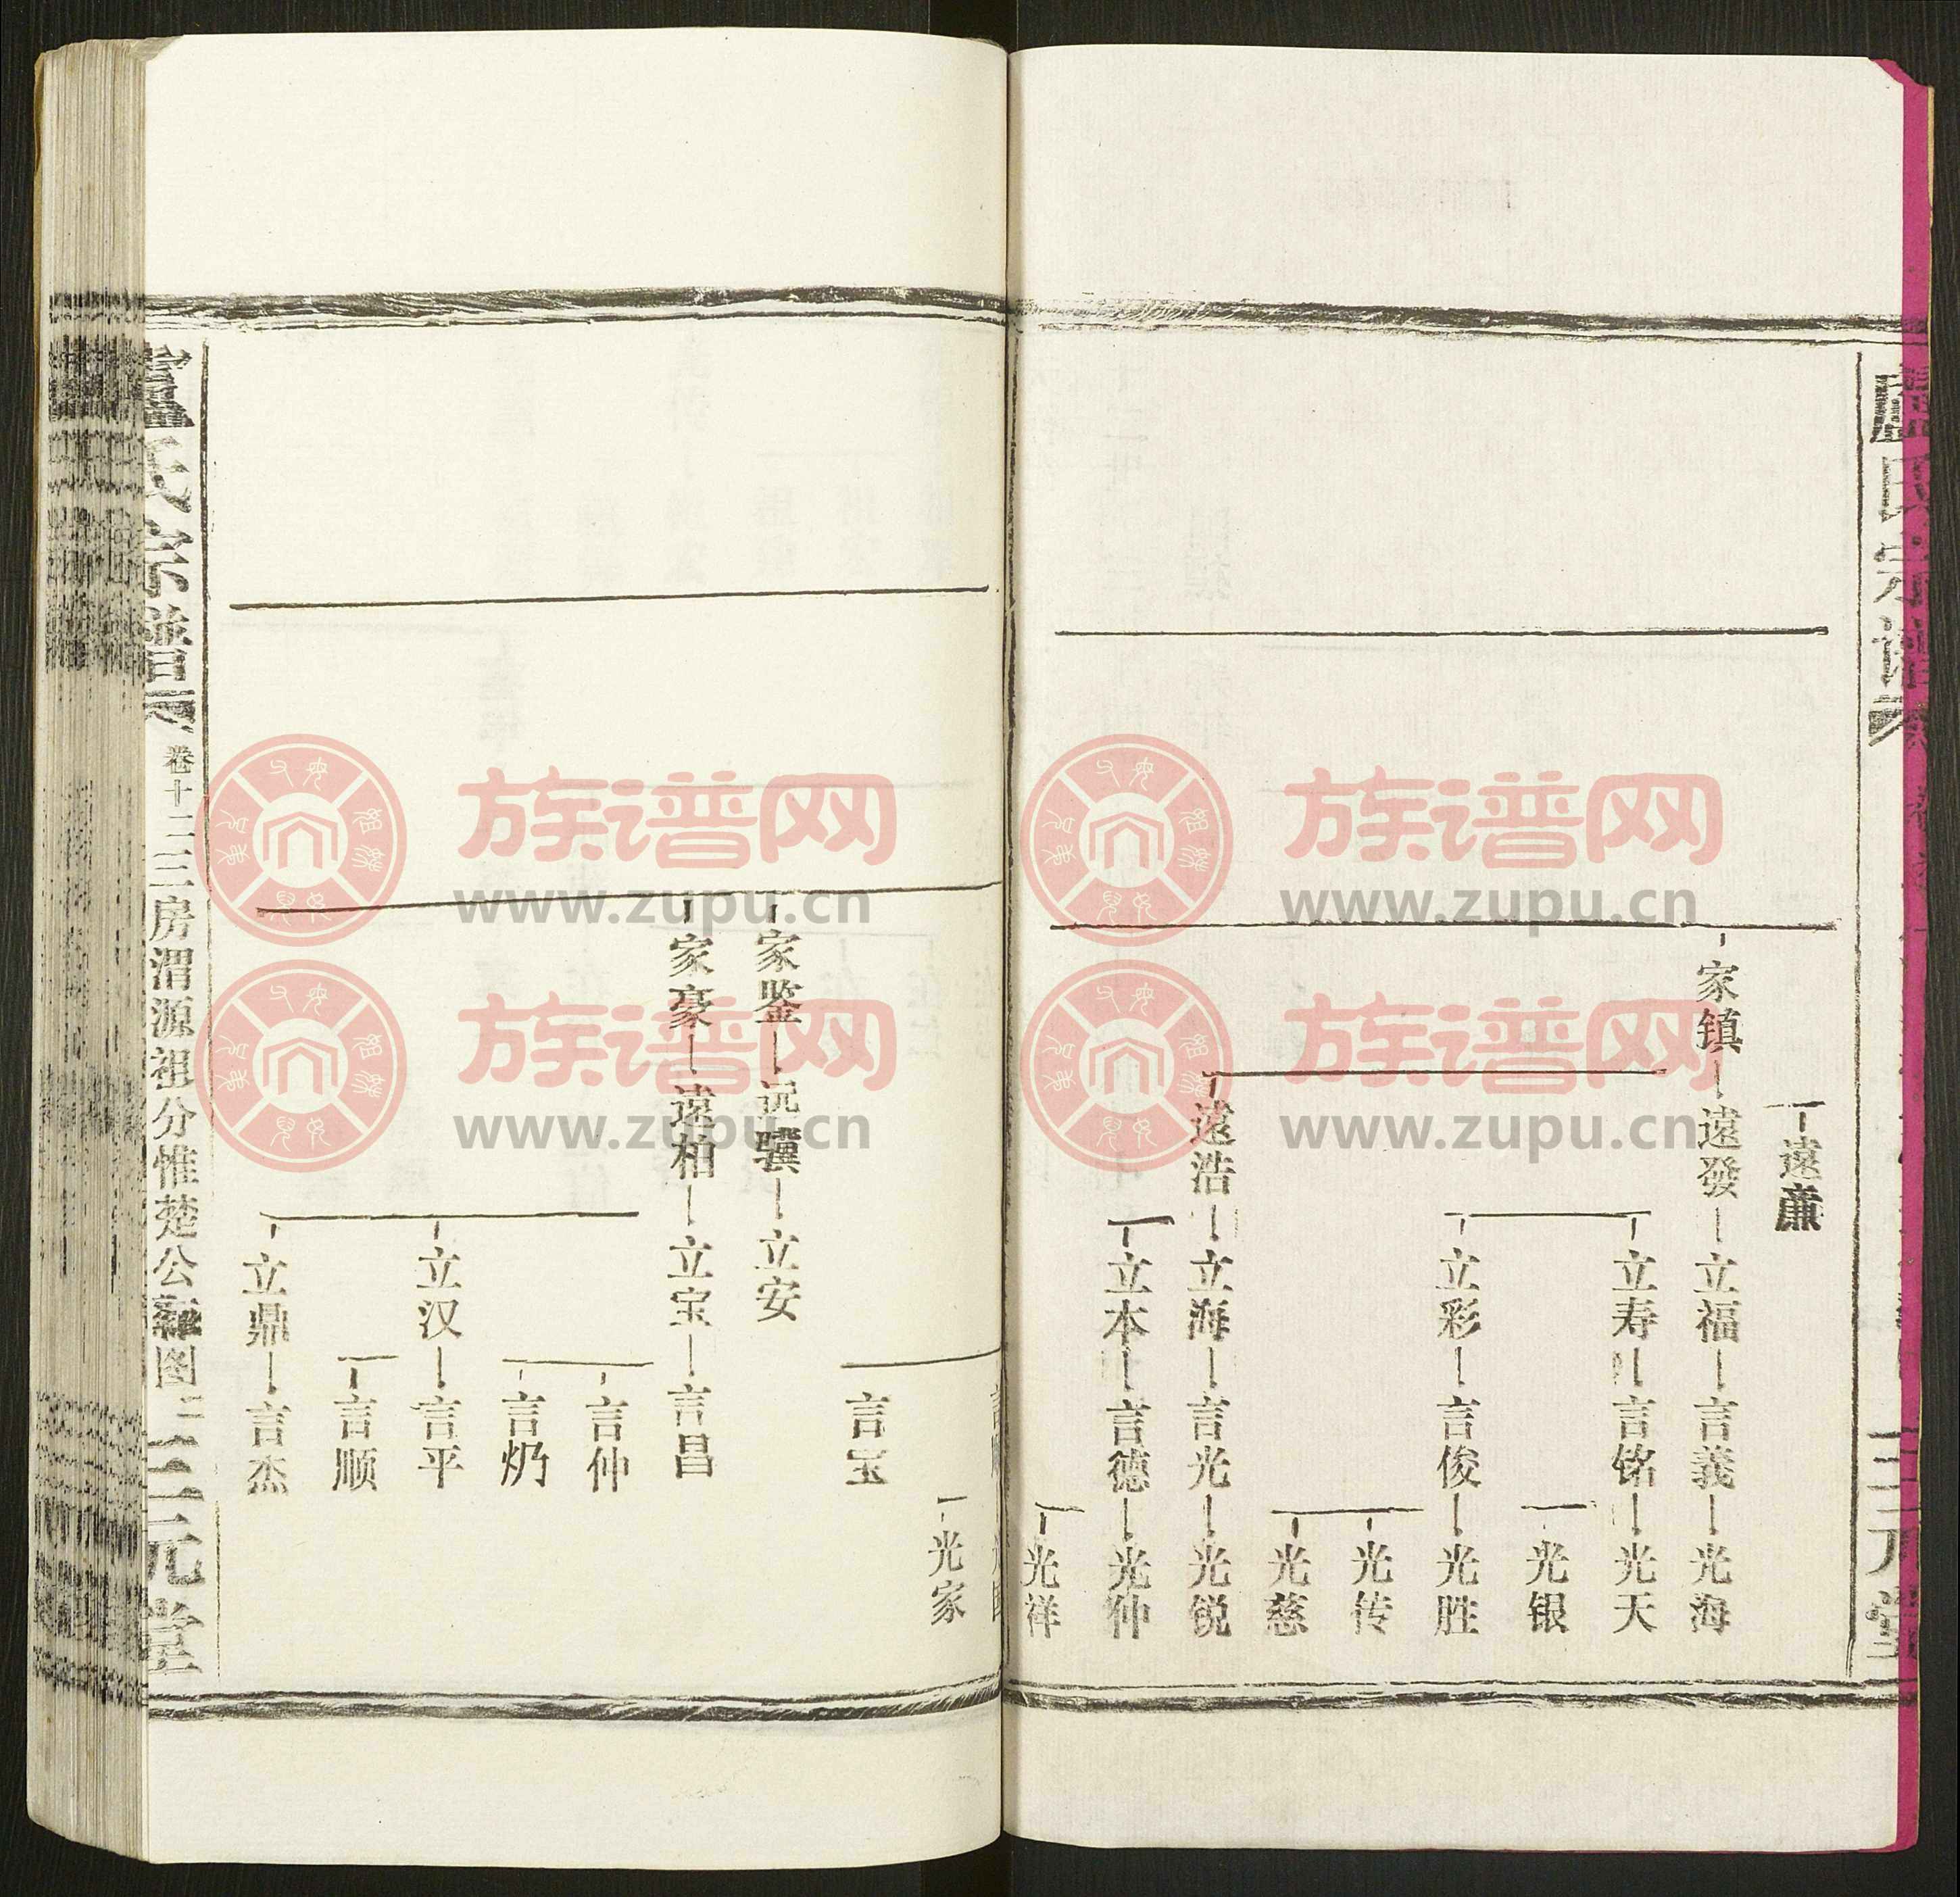 三元堂
遠廉
家镇 遠發 立福 言義 光海
立寿 言铭 光天
光银
立彩 言俊 光胜
光传
光慈
遠浩 立海 言光 光锐
立本 言德 光仲
光祥
光家
言宝
家鉴 远骥 立安
家豪 遠柏 立宝 言昌
言仲
言炳
立汉 言平
言顺
立鼎 言杰
氏宗譜 卷十二 三房渭源祖分惟楚公 图 三元堂
族谱网
www.zupu.cn
族谱网
www.zupu.cn
族谱网
www.zupu.cn
族谱网
www.zupu.cn